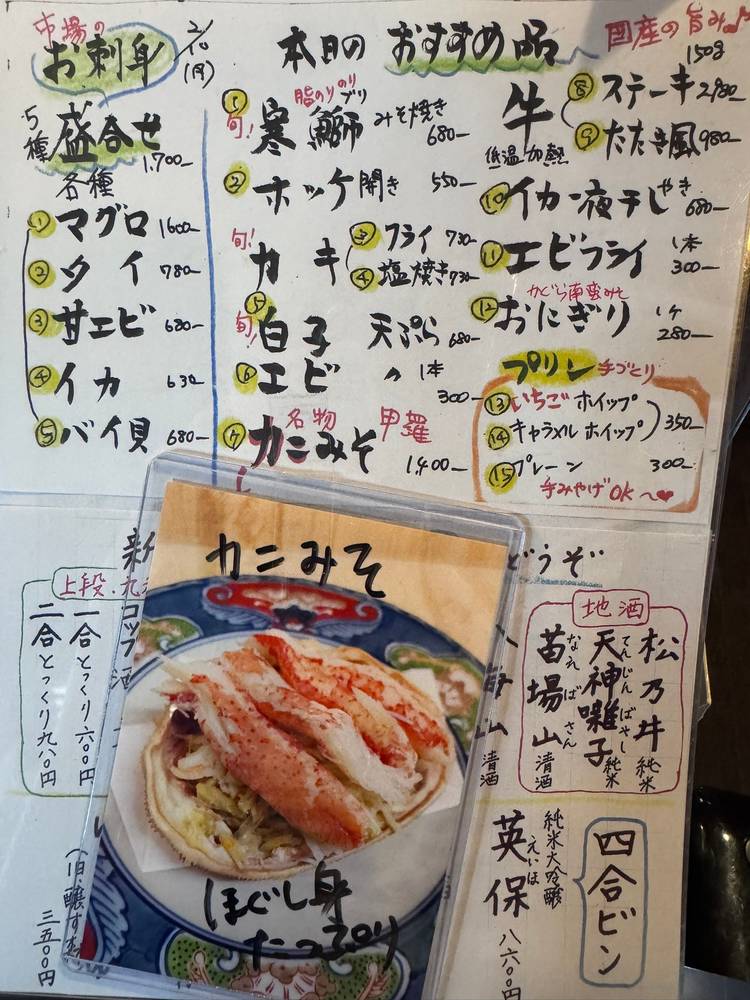 市場の
お刺身
2/10(月)
5種盛合せ
1.700-
各種
①マグロ 1600-
②タイ 780-
③甘エビ 680-
④イカ 630-
⑤バイ貝 680-
本日のおすすめ品
①旬!寒鰤 みそ焼き 680-
脂のりのりブリ
②ホッケ開き 550-
旬!カキ
③フライ 730-
④塩焼き 730-
⑤旬!白子 天ぷら 680-
⑥エビ 〃 1本 300-
⑦名物 カニみそ 甲羅 1400-
国産の旨み♪
150g
牛
低温加熱
⑧ステーキ 2980-
⑨たたき風 980-
⑩イカ一夜干しやき 680-
⑪エビフライ 1本 300-
かぐら南蛮みそ
⑫おにぎり 1ケ 280-
プリン 手づくり
⑬いちごホイップ
⑭キャラメルホイップ
350-
⑮プレーン 300-
手みやげOK〜♥
カニみそ
ほぐし身
たっぷり
どうぞ
地酒
松乃井 純米
天神囃子 純米
てんじんばやし
苗場山 清酒
なえばさん
山 清酒
四合ビン
純米大吟醸
英保 八六〇〇円
えいほ
上段
コップ酒
一合とっくり 六〇〇円
二合とっくり 九八〇円
三五〇〇円